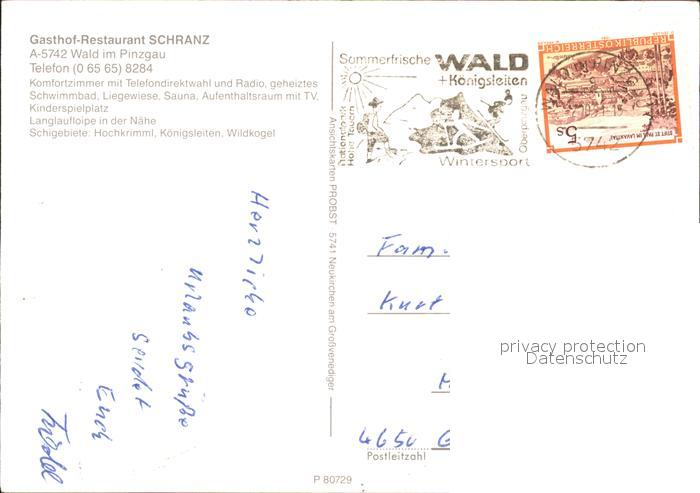 Gasthof-Restaurant SCHRANZ
A-5742 Wald im Pinzgau
Telefon (0 65 65) 8284
Komfortzimmer mit Telefondirektwahl und Radio, geheiztes
Schwimmbad, Liegewiese, Sauna, Aufenthaltsraum mit TV,
Kinderspielplatz
Langlaufloipe in der Nähe
Schigebiete: Hochkrimml, Königsleiten, Wildkogel
Herzliche
Urlaubsgrüße
sendet
Euch
Ansichtskarten PROBST 5741 Neukirchen am Großvenediger
P 80729
Sommerfrische WALD
+Königsleiten
Nationalpark
Hohe Tauern
Oberpinzgau
Wintersport
REPUBLIK ÖSTERREICH
5s
STIFT ST. PAUL IM LAVANTTAL
5742
Fam.
Kurt
4650 G
Postleitzahl
privacy protection
Datenschutz